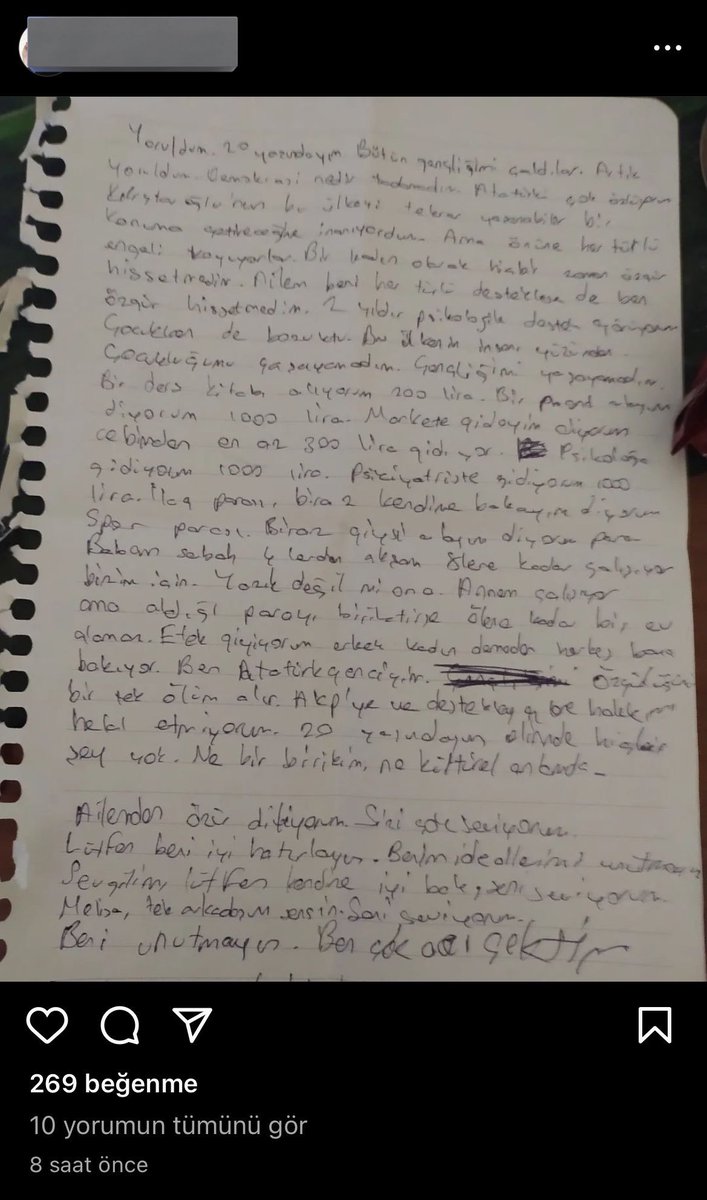 Yoruldum. 20 yaşındayım Bütün gençliğimi çaldılar. Artık
yoruldum. Demokrasi nedir tadamadım. Atatürk'ü çok özlüyorum
Kılıçdaroğlu'nun bu ülkeyi tekrar yaşanabilir bir
konuma getireceğine inanıyordum. Ama önüne her türlü
engeli koyuyorlar. Bir kadın olarak hiçbir zaman özgür
hissetmedim. Ailem beni her türlü desteklese de ben
özgür hissetmedim. 2 yıldır psikolojik destek görüyorum
Çocukken de bozuktu. Bu ülkenin insanı yüzünden
Çocukluğumu yaşayamadım. Gençliğimi yaşayamadım.
Bir ders kitabı alıyorum 200 lira. Bir alayım
diyorum 1000 lira. Markete gideyim diyorum
cebimden en az 300 lira gidiyor. Psikoloğa
gidiyorum 1000 lira. Psikiyatriste gidiyorum 1000
lira. İlaç parası, biraz kendime bakayım diyorum
Spor parası. Biraz giysi alayım diyorum para
Babam sabah lerden akşam lere kadar çalışıyor
bizim için. Yazık değil mi ona. Annem çalışıyor
ama aldığı parayı biriktirse ölene kadar bir ev
alamaz. Etek giyiyorum erkek kadın demeden herkes bana
bakıyor. Ben Atatürk genciyim. Özgürlüğümü
bir tek ölüm alır. Akp'ye ve destekleyen hakkımı
helal etmiyorum. 20 yaşındayım elimde hiçbir
şey yok. Ne bir birikim, ne kültürel
Ailemden özür diliyorum. Sizi çok seviyorum.
Lütfen beni iyi hatırlayın. Benim ideallerimi unutmayın
Sevgilim, lütfen kendine iyi bak, seni seviyorum.
Melisa, tek arkadaşım sensin. Seni seviyorum.
Beni unutmayın. Ben çok acı çektim
269 beğenme
10 yorumun tümünü gör
8 saat önce